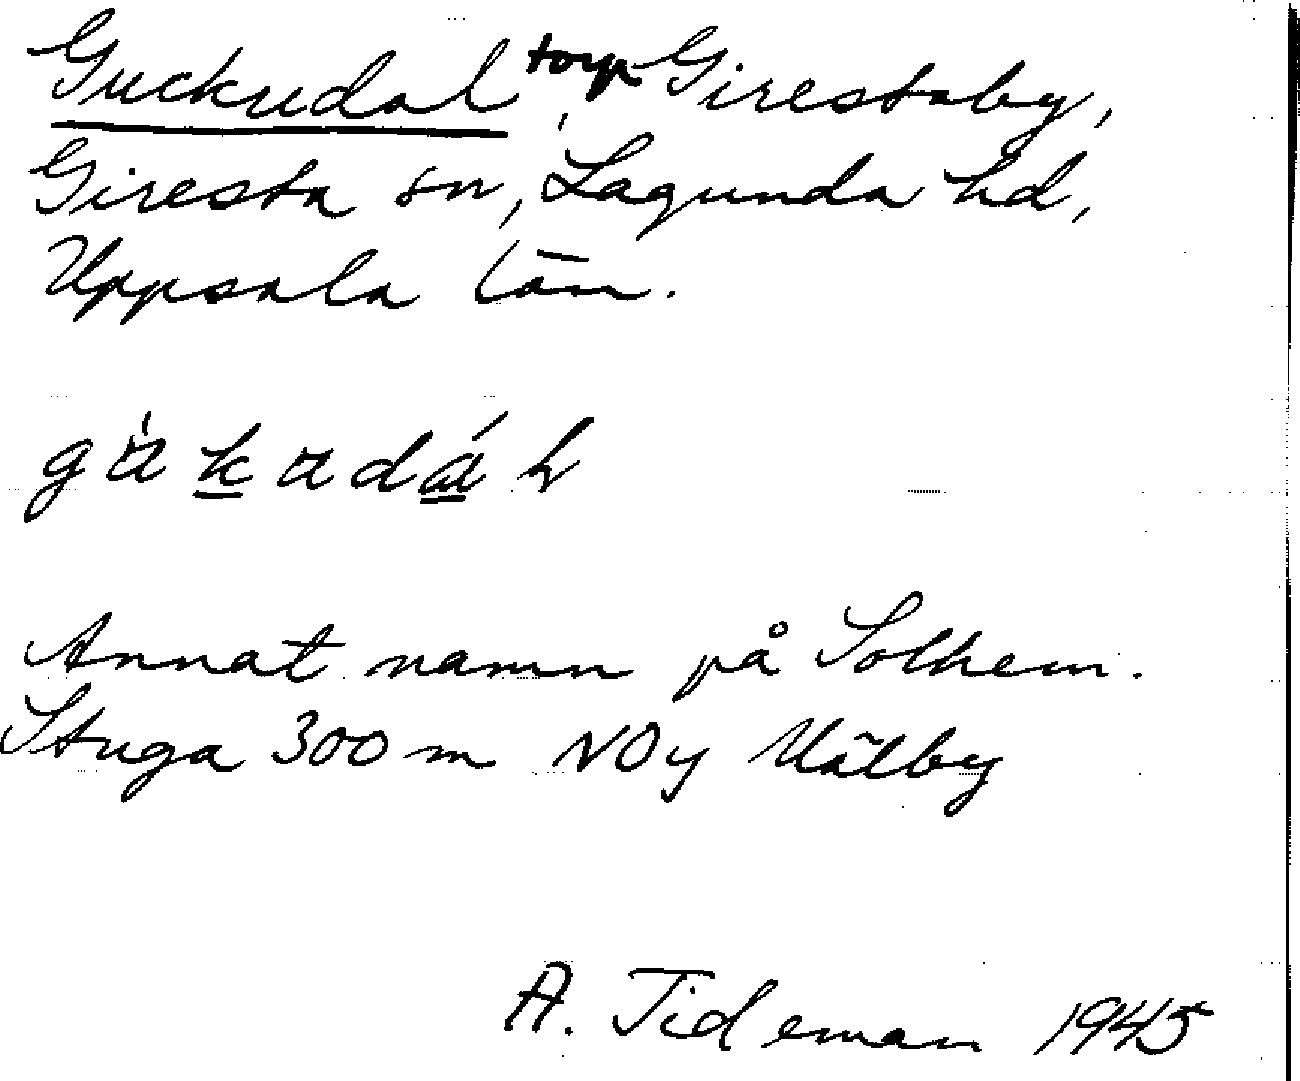 Guckudal, torp Girestaby,
Giresta sn, Lagunda hd,
Uppsala län.
Annat namn på Solhem.
Stuga 300 m NOy Välby
A. Tideman 1945